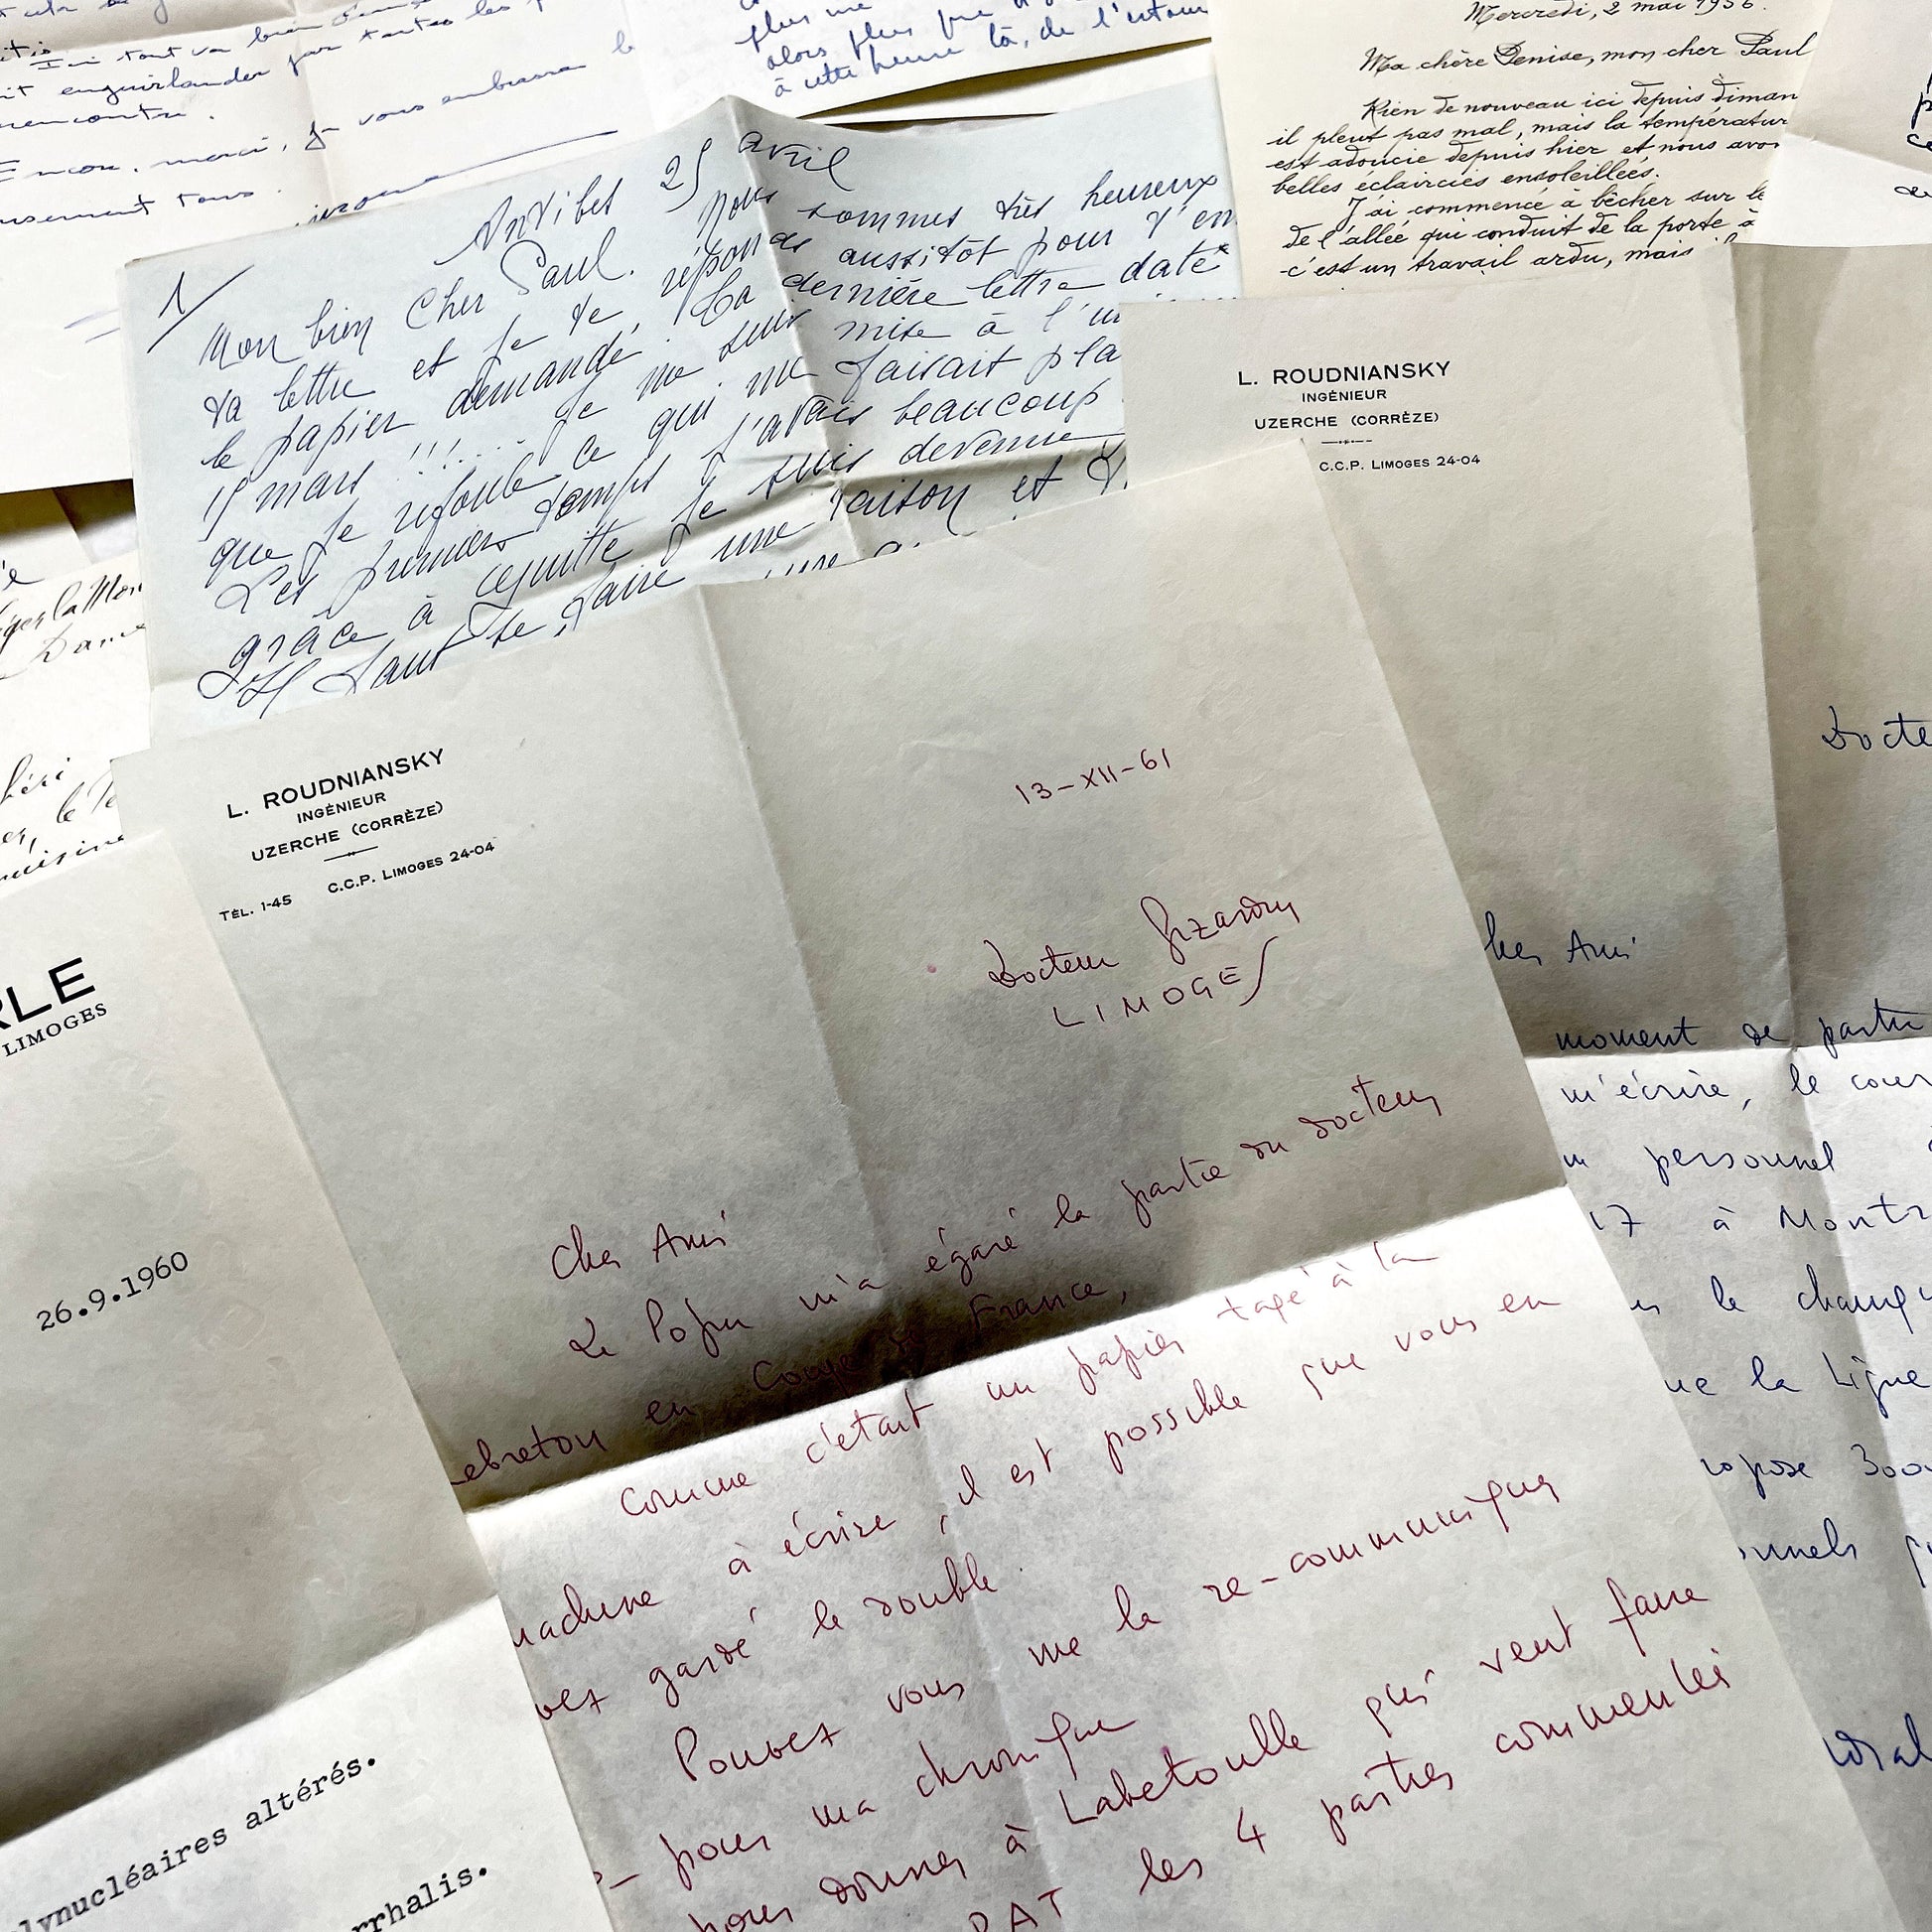 Ici tout va bien
enguirlander par toutes les
rencontre.
Encore merci, je vous embrasse
tous.
plus me
alors plus que
à cette heure là, de l'estom
Mercredi, 2 mai 1956.
Ma chère Denise, mon cher Paul
Rien de nouveau ici depuis diman
il pleut pas mal, mais la températur
est adoucie depuis hier et nous avon
belles éclaircies ensoleillées.
J'ai commencé à bêcher sur le
de l'allée qui conduit de la porte à
c'est un travail ardu, mais il
1/
Antibes 25 avril
Mon bien Cher Paul. Nous sommes très heureux
ta lettre et je te réponds aussitôt pour t'en
le papier demandé. Ta dernière lettre date
15 mars !!!... je me suis mise à l'
que je refoule ce qui me faisait pla
Les premiers temps j'avais beaucoup
grâce à je suis devenue
Il faut se faire une raison et
L. ROUDNIANSKY
INGÉNIEUR
UZERCHE (CORRÈZE)
C.C.P. LIMOGES 24-04
L. ROUDNIANSKY
INGÉNIEUR
UZERCHE (CORRÈZE)
TÉL. 1-45 C.C.P. LIMOGES 24-04
13-XII-61
Docteur Gizardin
LIMOGES
Cher Ami
Le Popu m'a égaré la partie du docteur
Lebreton en Coupe de France,
Comme c'était un papier tapé à la
machine à écrire, il est possible que vous en
vez gardé le double.
Pouvez vous me la re-communiquer
pour ma chronique
pour donner à Labetoulle qui veut faire
PAT les 4 parties commentées
RLE
LIMOGES
26.9.1960
lynucléaires altérés.
rrhalis.
Docte
her Ami
moment de partir
m'écrire, le cour
personnel
17 à Montr
le chang
ue la Ligue
ropose 300
nnels